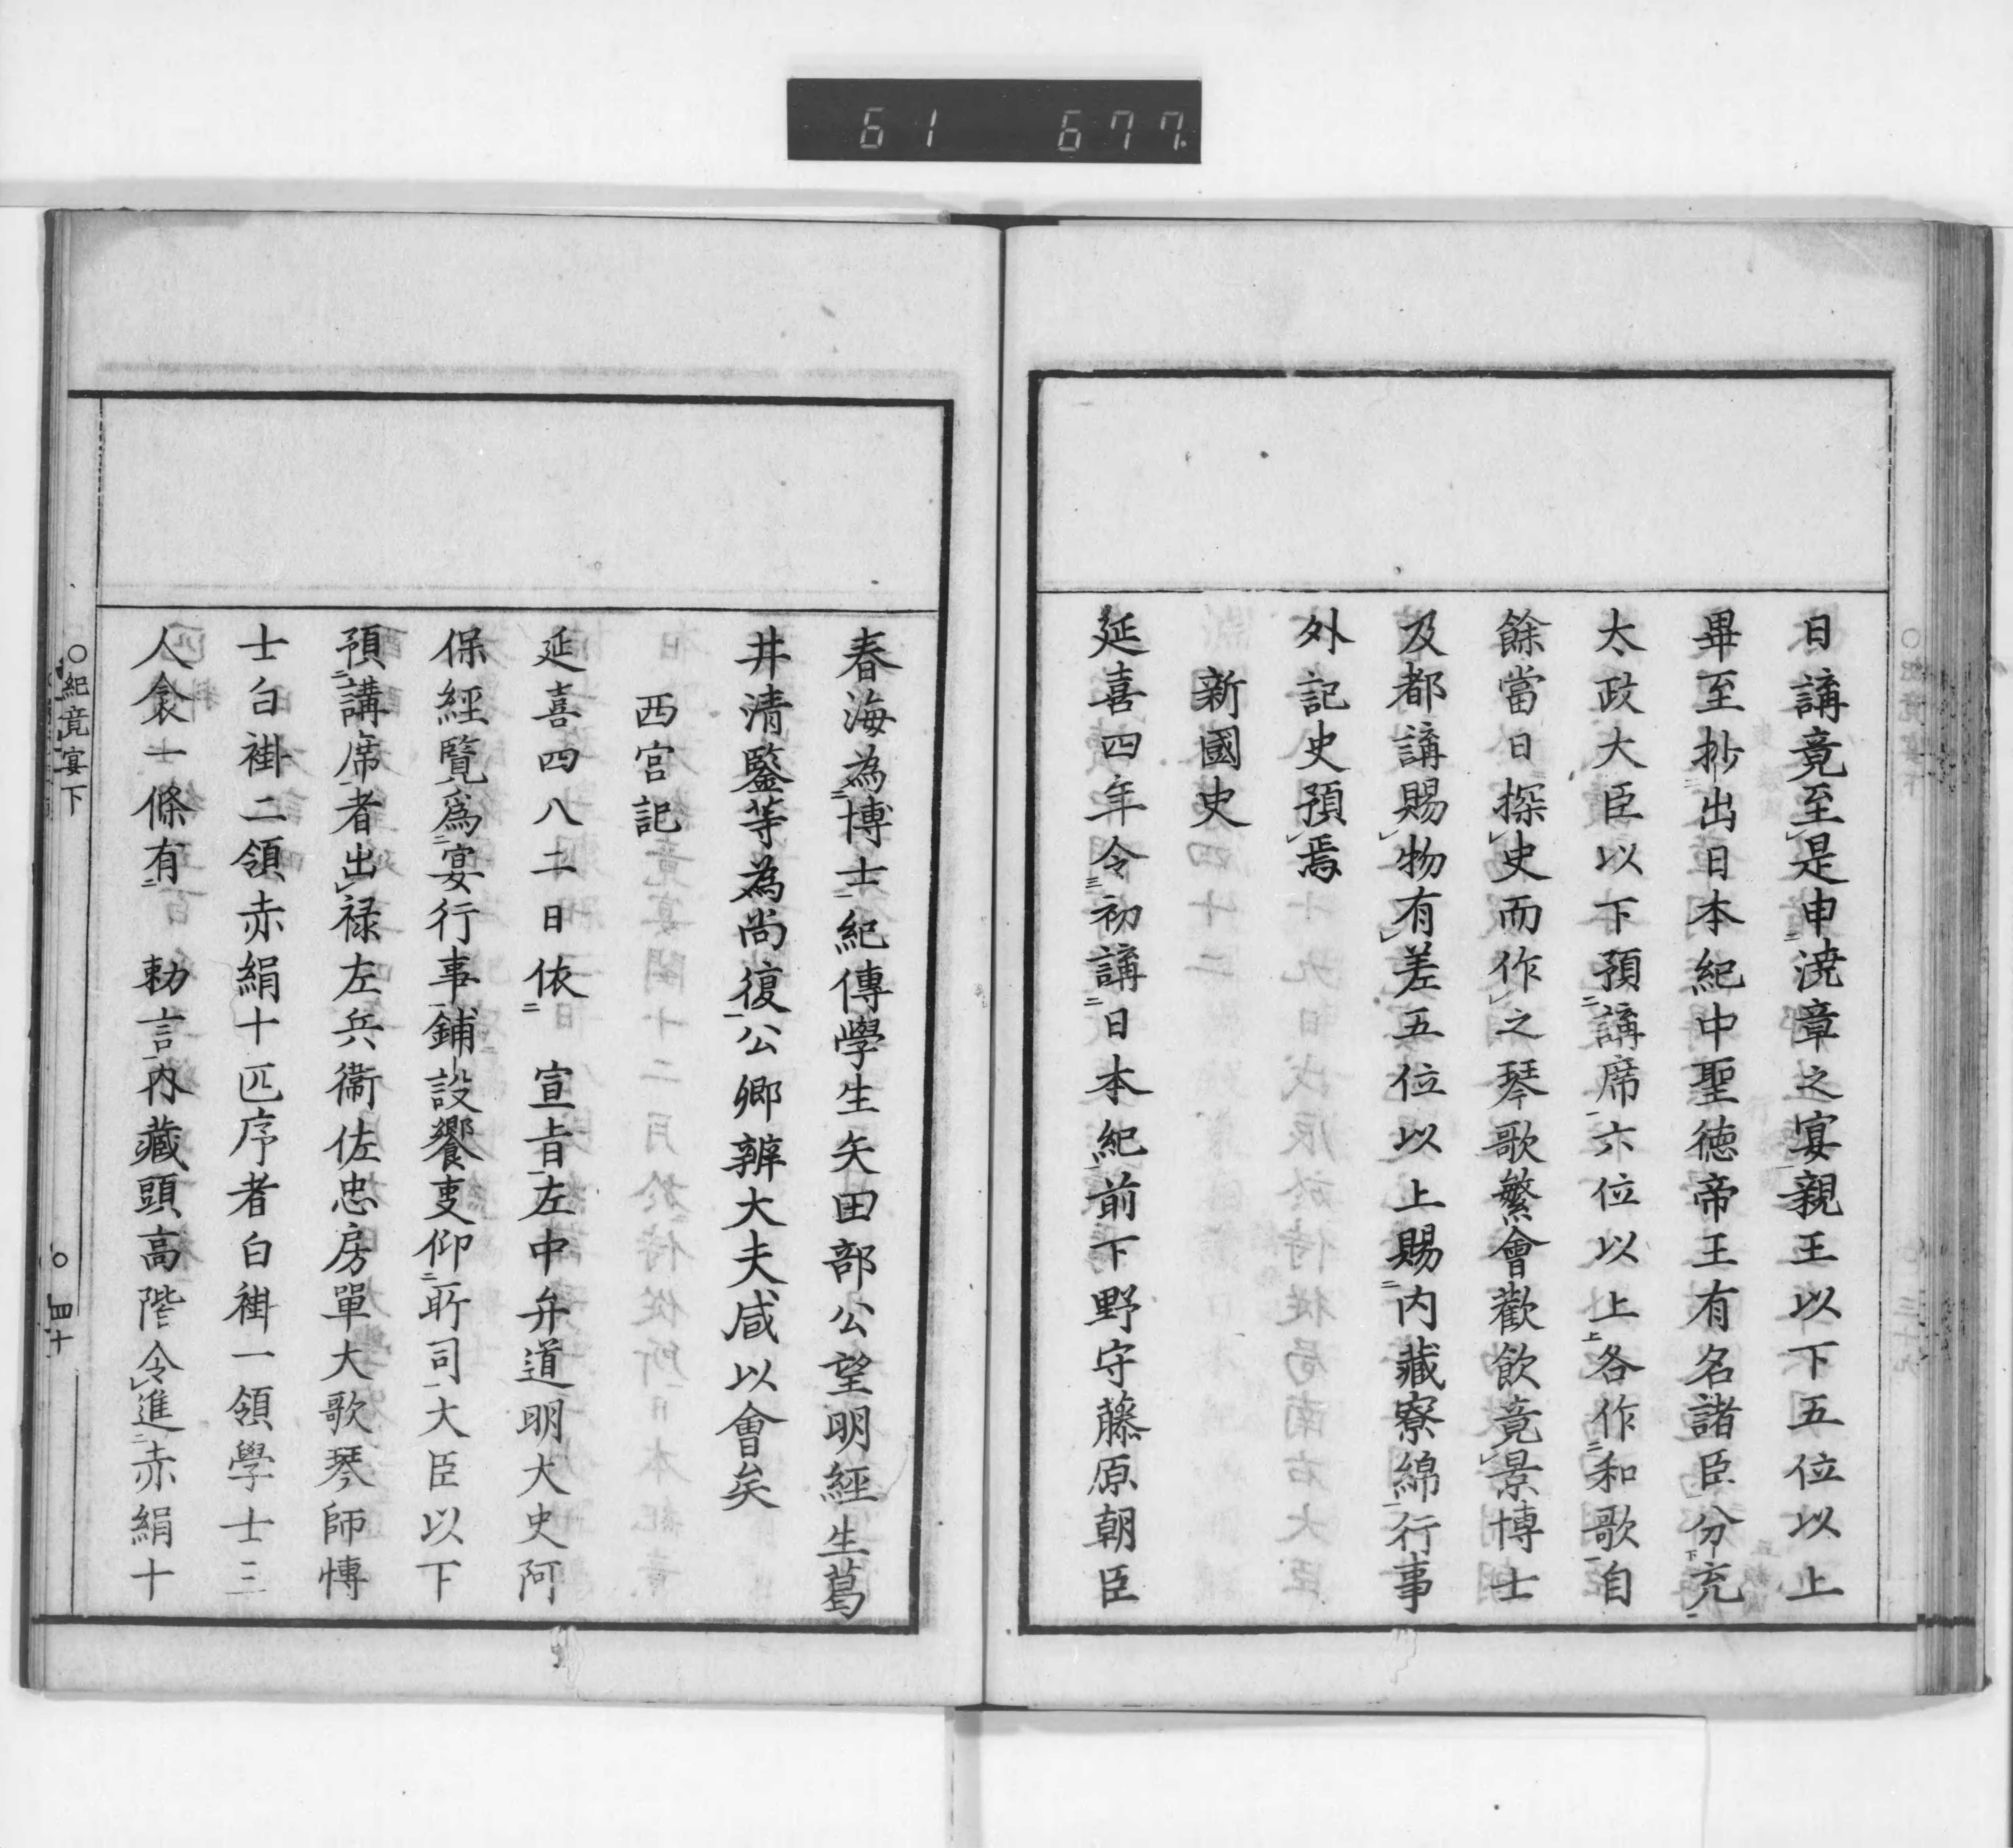 61 677.
日講竟至是申澆章之宴親王以下五位以上
畢至抄出日本紀中聖徳帝王有名諸臣分充
太政大臣以下預講席六位以上各作和歌自
餘當日探史而作之琴歌繁會歡飲竟景博士
及都講賜物有差五位以上賜内藏寮綿行事
外記史預焉
新國史
延喜四年令初講日本紀前下野守藤原朝臣
春海為博士紀傳學生矢田部公望明經生葛
井清鑒等為尚復公卿辨大夫咸以會矣
西宮記
延喜四八二日依 宣旨左中弁道明大史阿
保經覽爲宴行事鋪設饗叓仰所司大臣以下
預講席者出禄左兵衞佐忠房單大歌琴師博
士白褂二領赤絹十匹序者白褂一領學士三
人衾士條有 勅言内藏頭高階令進赤絹十
○紀竟宴下
○四十